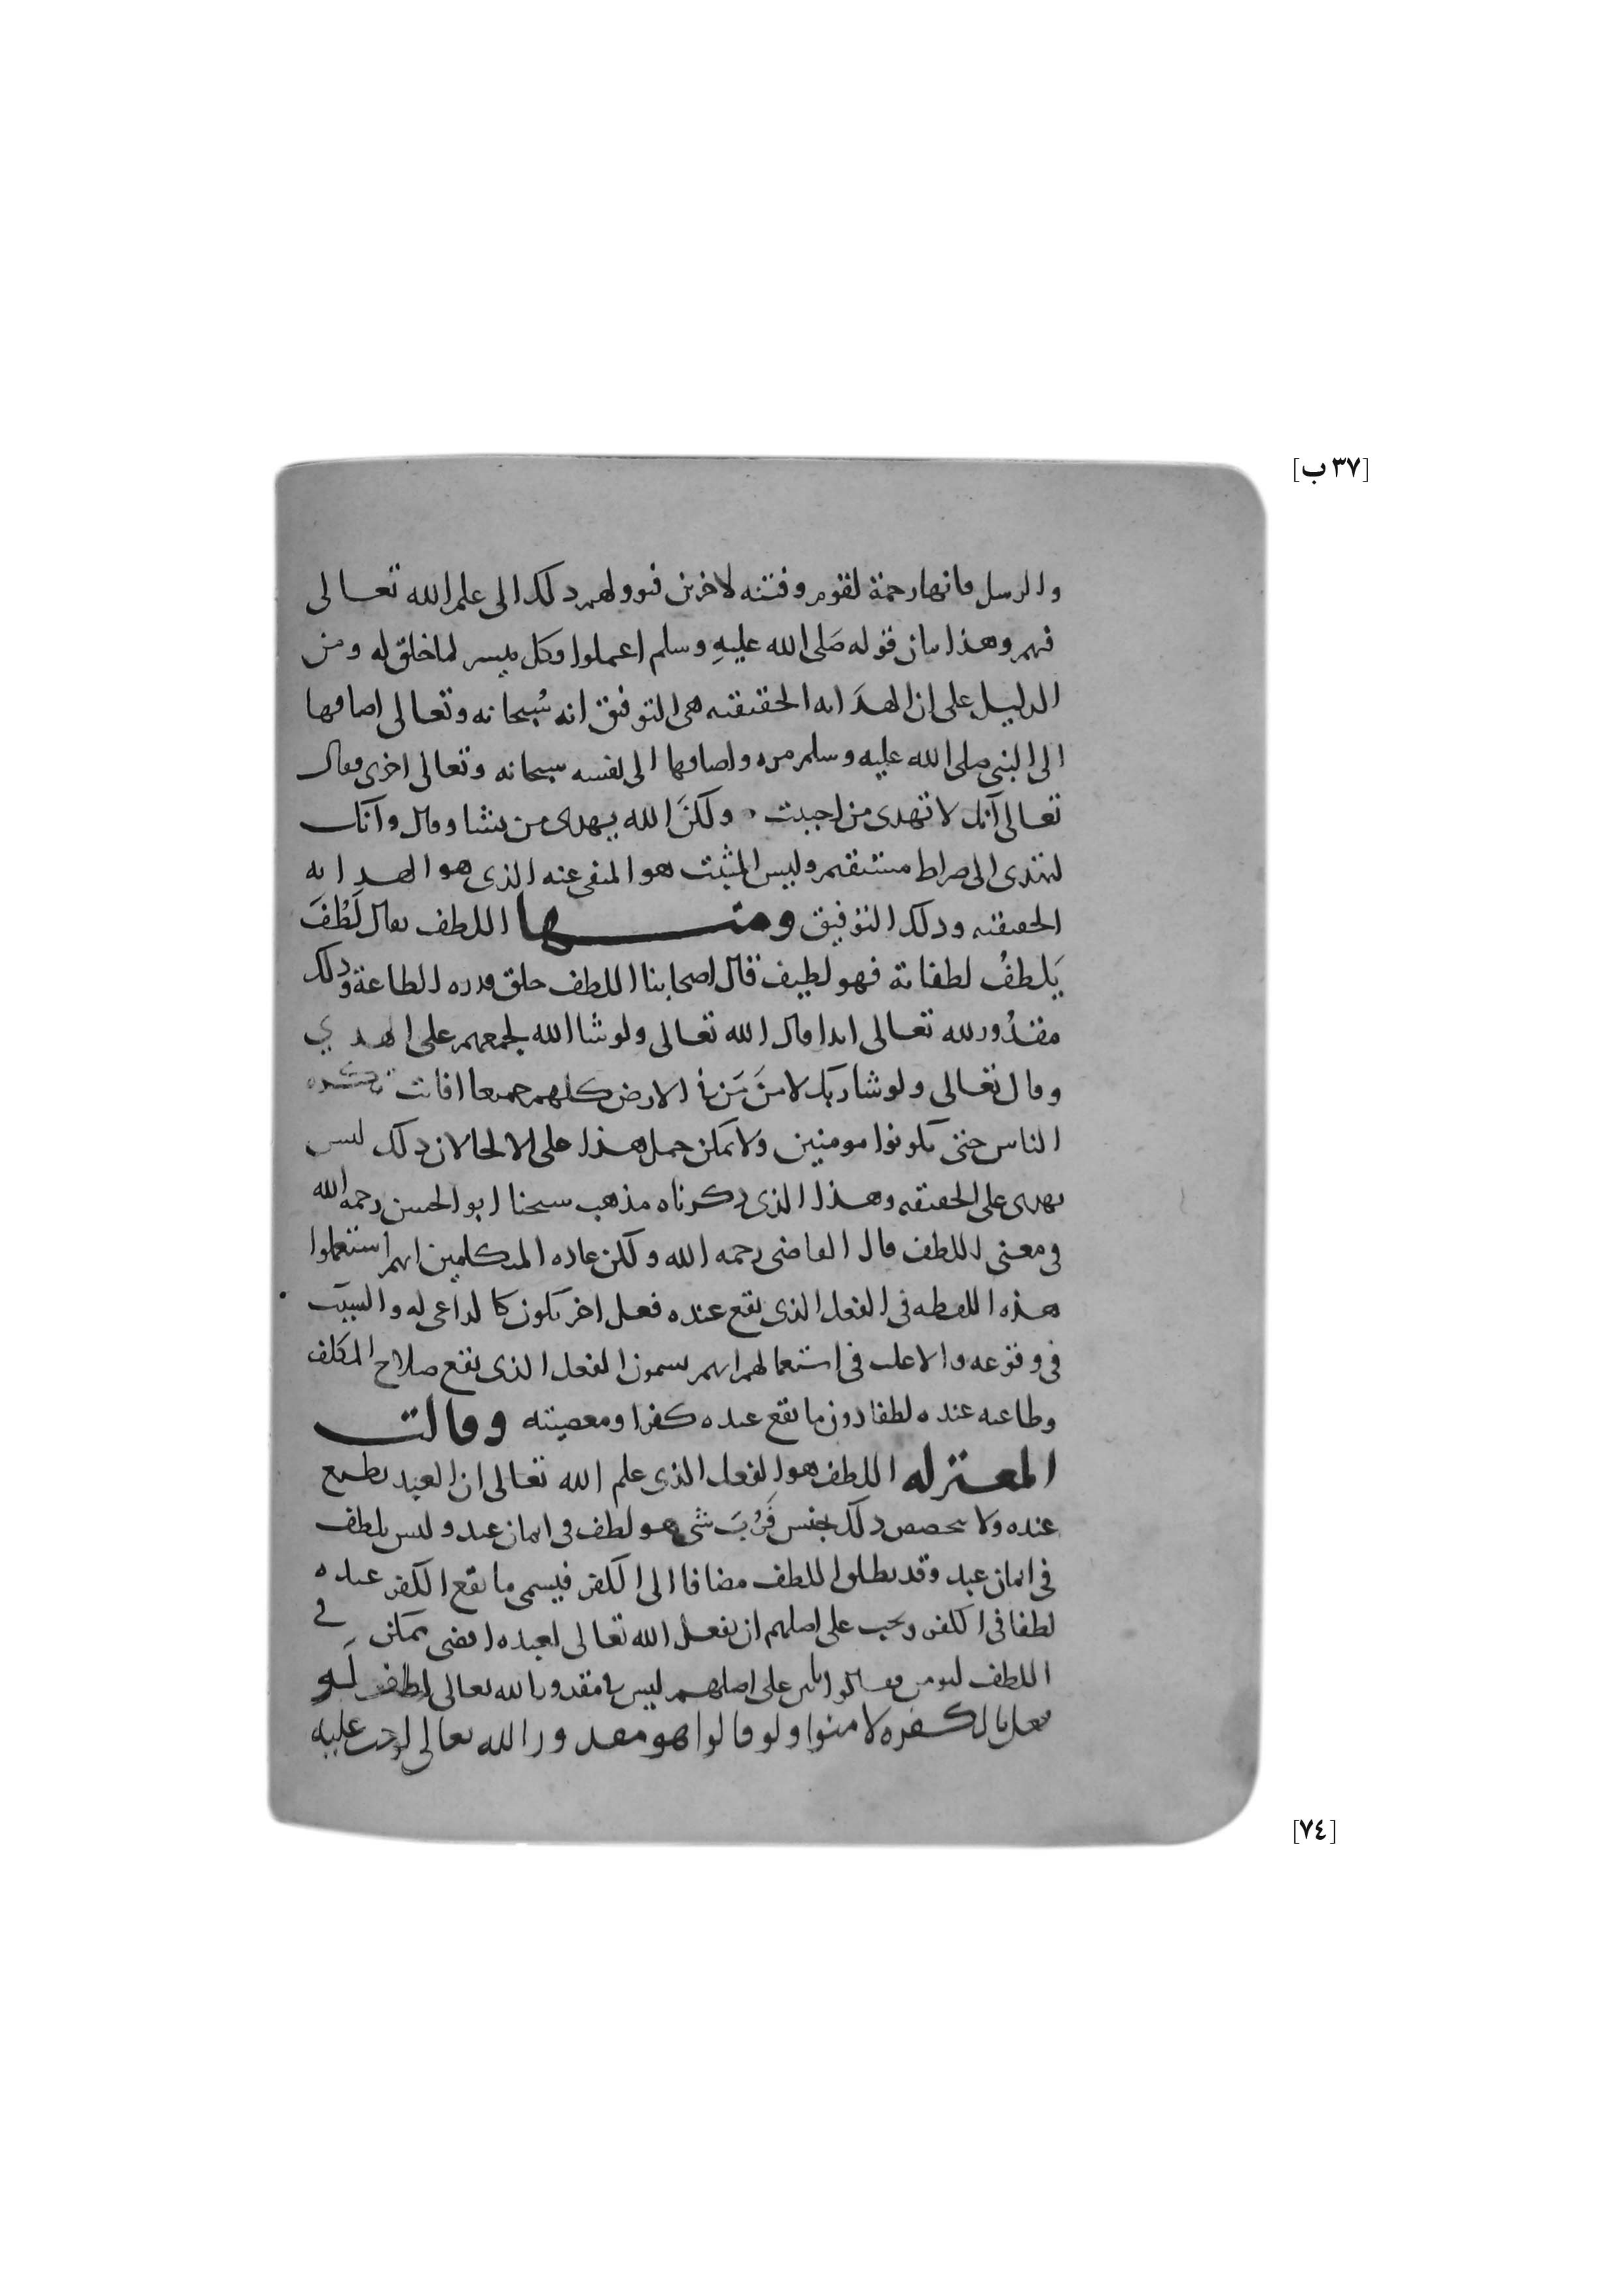 [٣٧ ب]
والرسل فانها رحمة لقوم وفتنه لاخرين فيوولهم ذلك الى علم الله تعالى
فيهم وهذا بيان قوله صَلى الله عليهِ وسلم اعملوا وكل ميسر لما خلق له ومن
الدليل على ان الهدَايه الحقيقيه هي التوفيق انه سُبحانه وتعالى اضافها
الى النبي صلى الله عليه وسلم مره واضافها الى نفسه سبحانه وتعالى اخرى فقال
تعالى انك لا تهدى من احببت ولكنَ الله يهدى من يشا وقال وانك
لتهدى الى صراط مستقيم وليس المثبت هو المنفى عنه الذى هو الهدايه
الحقيقيه وذلك التوفيق ومنها اللطف يقال لَطُفَ
يَلطفُ لطفا فهو لطيف قال اصحابنا اللطف خلق قدره الطاعة وذلك
مقدُور لله تعالى ابدا قال الله تعالى ولو شا الله لجمعهم على الهدي
وقال تعالى ولو شا ربك لامنَ مَن في الارض كلهم جميعا افانت تكره
الناس حتى يكونوا مومنين ولا يمكن حمل هذا على الالجا لان ذلك ليس
بهدى على الحقيقه وهذا الذى ذكرناه مذهب شيخنا ابو الحسن رحمه الله
في معنى اللطف قال القاضى رحمه الله ولكن عاده المتكلمين انهم استعملوا
هذه اللفظه في الفعل الذى يقع عنده فعل اخر يكون كالداعى له والسبب
في وقوعه والاغلب في استعمالهم انهم يسمون الفعل الذى يقع صلاح المكلف
وطاعته عنده لطفا دون ما يقع عنده كفرا ومعصيته وقالت
المعتزله اللطف هو الفعل الذى علم الله تعالى ان العبد يطيع
عنده ولا يتخصص ذلك بجنس فَرُبَ شى هو لطف في ايمان عبد وليس بلطف
في ايمان عبد وقد يطلوا اللطف مضافا الى الكفر فيسمى ما يقع الكفر عنده
لطفا في الكفر ويجب على اصلهم ان يفعل الله تعالى لعبده اقصى ممكن في
اللطف ليومن على اصلهم ليس في مقدور الله تعالى لطف لو
فعل بالكفره لامنوا ولو قالوا هو مقدور الله تعالى لوجب عليه
[٧٤]